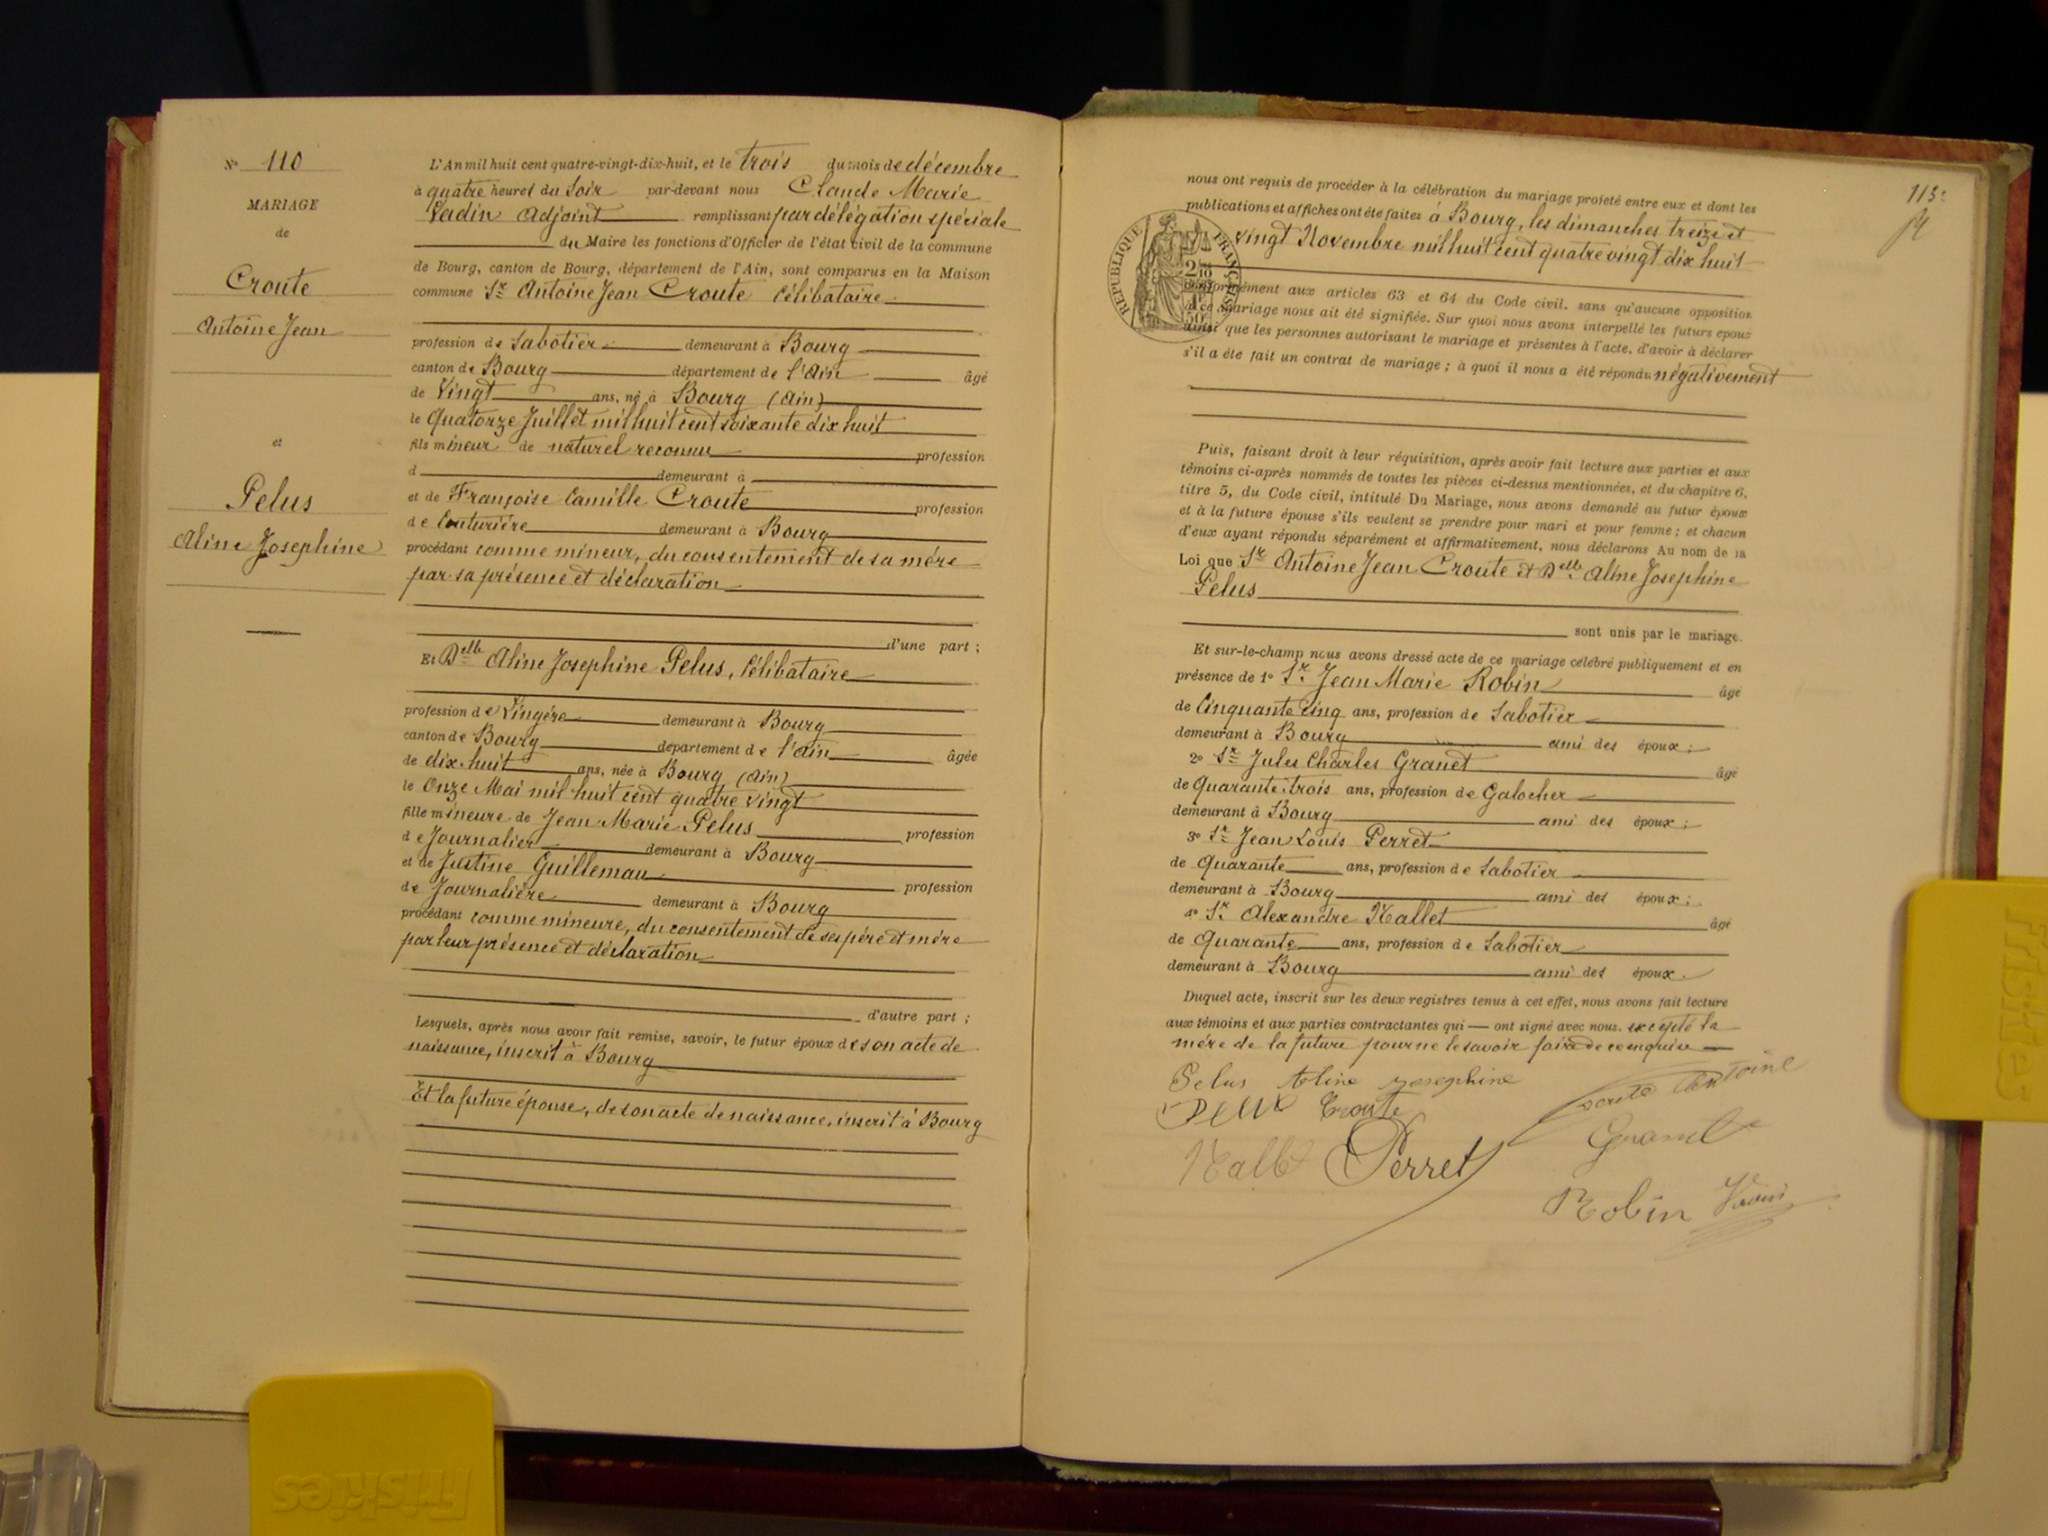 N° 110
MARIAGE
de
Croute
Antoine Jean
et
Pelus
Aline Josephine
L'An mil huit cent quatre-vingt-dix-huit, et le trois du mois de décembre
à quatre heures du soir par-devant nous Claude Marie
Vadin Adjoint remplissant par délégation spéciale
du Maire les fonctions d'Officier de l'état civil de la commune
de Bourg, canton de Bourg, département de l'Ain, sont comparus en la Maison
commune Sr Antoine Jean Croute Célibataire
profession de Sabotier demeurant à Bourg
canton de Bourg département de l'Ain âgé
de Vingt ans, né à Bourg (Ain)
le Quatorze Juillet mil huit cent soixante dix huit
fils mineur de naturel reconnu profession
d demeurant à
et de Françoise Camille Croute profession
de Couturière demeurant à Bourg
procédant comme mineur, du consentement de sa mère
par sa présence et déclaration
d'une part ;
Et Delle Aline Josephine Pelus, Célibataire
profession de Lingère demeurant à Bourg
canton de Bourg département de l'Ain âgée
de dix-huit ans, née à Bourg (Ain)
le Onze Mai mil huit cent quatre vingt
fille mineure de Jean Marie Pelus profession
de Journalier demeurant à Bourg
et de Justine Guillemau profession
de Journalière demeurant à Bourg
procédant comme mineure, du consentement de ses père et mère
par leur présence et déclaration
d'autre part ;
Lesquels, après nous avoir fait remise, savoir, le futur époux de son acte de
naissance, inscrit à Bourg
Et la future épouse, de son acte de naissance, inscrit à Bourg
113
nous ont requis de procéder à la célébration du mariage projeté entre eux et dont les
publications et affiches ont été faites à Bourg, les dimanches treize et
vingt Novembre mil huit cent quatre vingt dix huit
RÉPUBLIQUE FRANÇAISE
conformément aux articles 63 et 64 du Code civil. sans qu'aucune opposition
à ce mariage nous ait été signifiée. Sur quoi nous avons interpellé les futurs époux
ainsi que les personnes autorisant le mariage et présentes à l'acte, d'avoir à déclarer
s'il a été fait un contrat de mariage ; à quoi il nous a été répondu négativement
Puis, faisant droit à leur réquisition, après avoir fait lecture aux parties et aux
témoins ci-après nommés de toutes les pièces ci-dessus mentionnées, et du chapitre 6,
titre 5, du Code civil, intitulé Du Mariage, nous avons demandé au futur époux
et à la future épouse s'ils veulent se prendre pour mari et pour femme ; et chacun
d'eux ayant répondu séparément et affirmativement, nous déclarons Au nom de la
Loi que Sr Antoine Jean Croute et Delle Aline Josephine
Pelus
sont unis par le mariage.
Et sur-le-champ nous avons dressé acte de ce mariage célébré publiquement et en
présence de 1° Sr Jean Marie Robin âgé
de Cinquante cinq ans, profession de Sabotier
demeurant à Bourg ami des époux ;
2° Sr Jules Charles Granet âgé
de Quarante trois ans, profession de Galocher
demeurant à Bourg ami des époux ;
3° Sr Jean Louis Perret
de Quarante ans, profession de Sabotier
demeurant à Bourg ami des époux ;
4° Sr Alexandre Nallet âgé
de Quarante ans, profession de Sabotier
demeurant à Bourg ami des époux.
Duquel acte, inscrit sur les deux registres tenus à cet effet, nous avons fait lecture
aux témoins et aux parties contractantes qui ont signé avec nous. excepté la
mère de la future pour ne le savoir faire de ce enquise
Pelus Aline Josephine
Croute Antoine
Croute
Granet
Perret
Robin
friskies
friskies